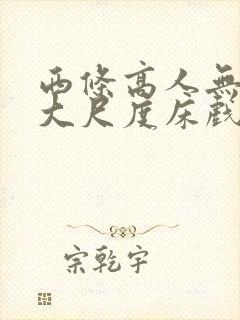 両條高人無
大尺度床戲
宗乾宇